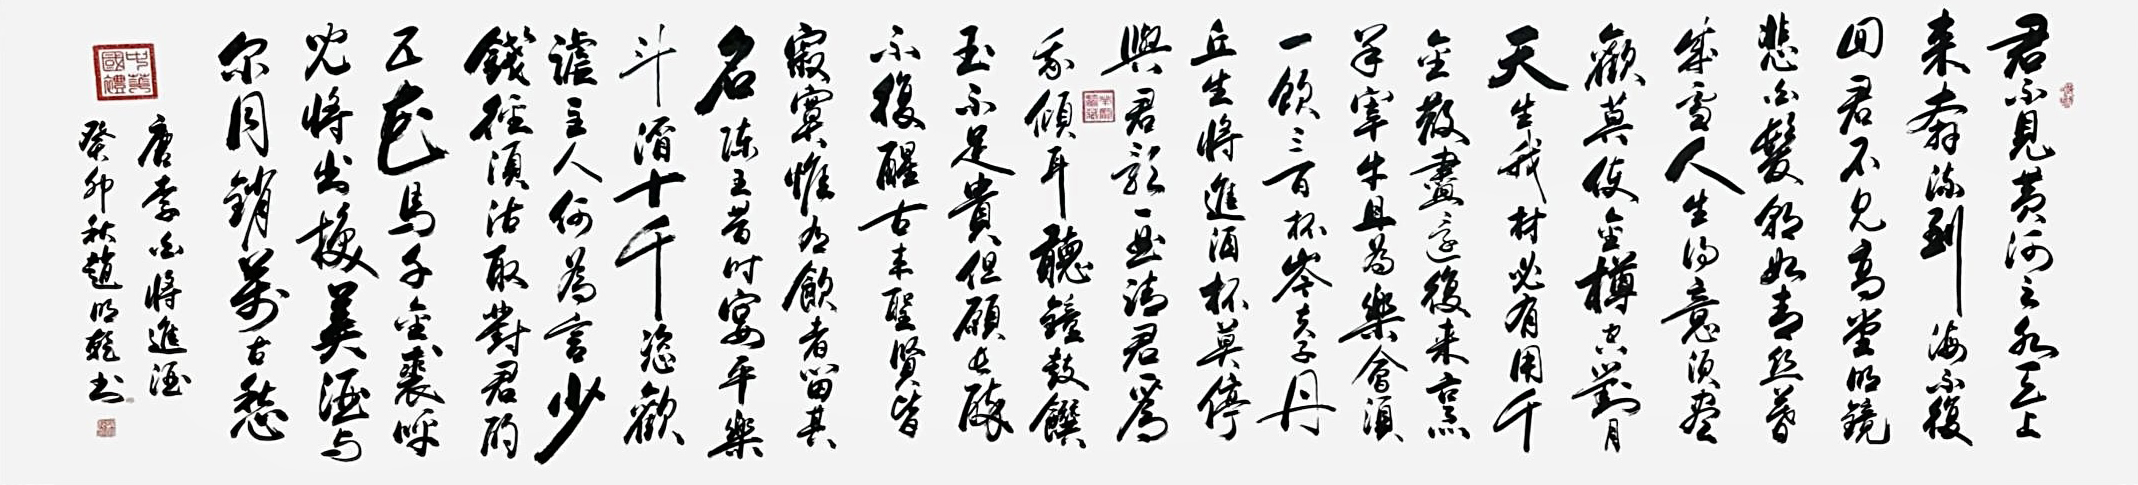 君不見黄河之水天上
来奔流到海不復
回君不見高堂明镜
悲白髮朝如青丝暮
成雪人生得意须尽
歡莫使金樽空對月
天生我材必有用千
金散盡還復来烹
羊宰牛且為樂會須
一飲三百杯岑夫子丹
丘生將進酒杯莫停
與君歌一曲請君為
我傾耳聽鐘鼓饌
玉不足貴但願長醉
不復醒古来聖賢皆
寂寞惟有飲者留其
名陳王昔時宴平樂
斗酒十千恣歡
謔主人何為言少
錢徑須沽取對君酌
五花馬千金裘呼
兒將出換美酒与
尔同銷萬古愁
唐李白將進酒
癸卯秋趙明乾书
中華國禮